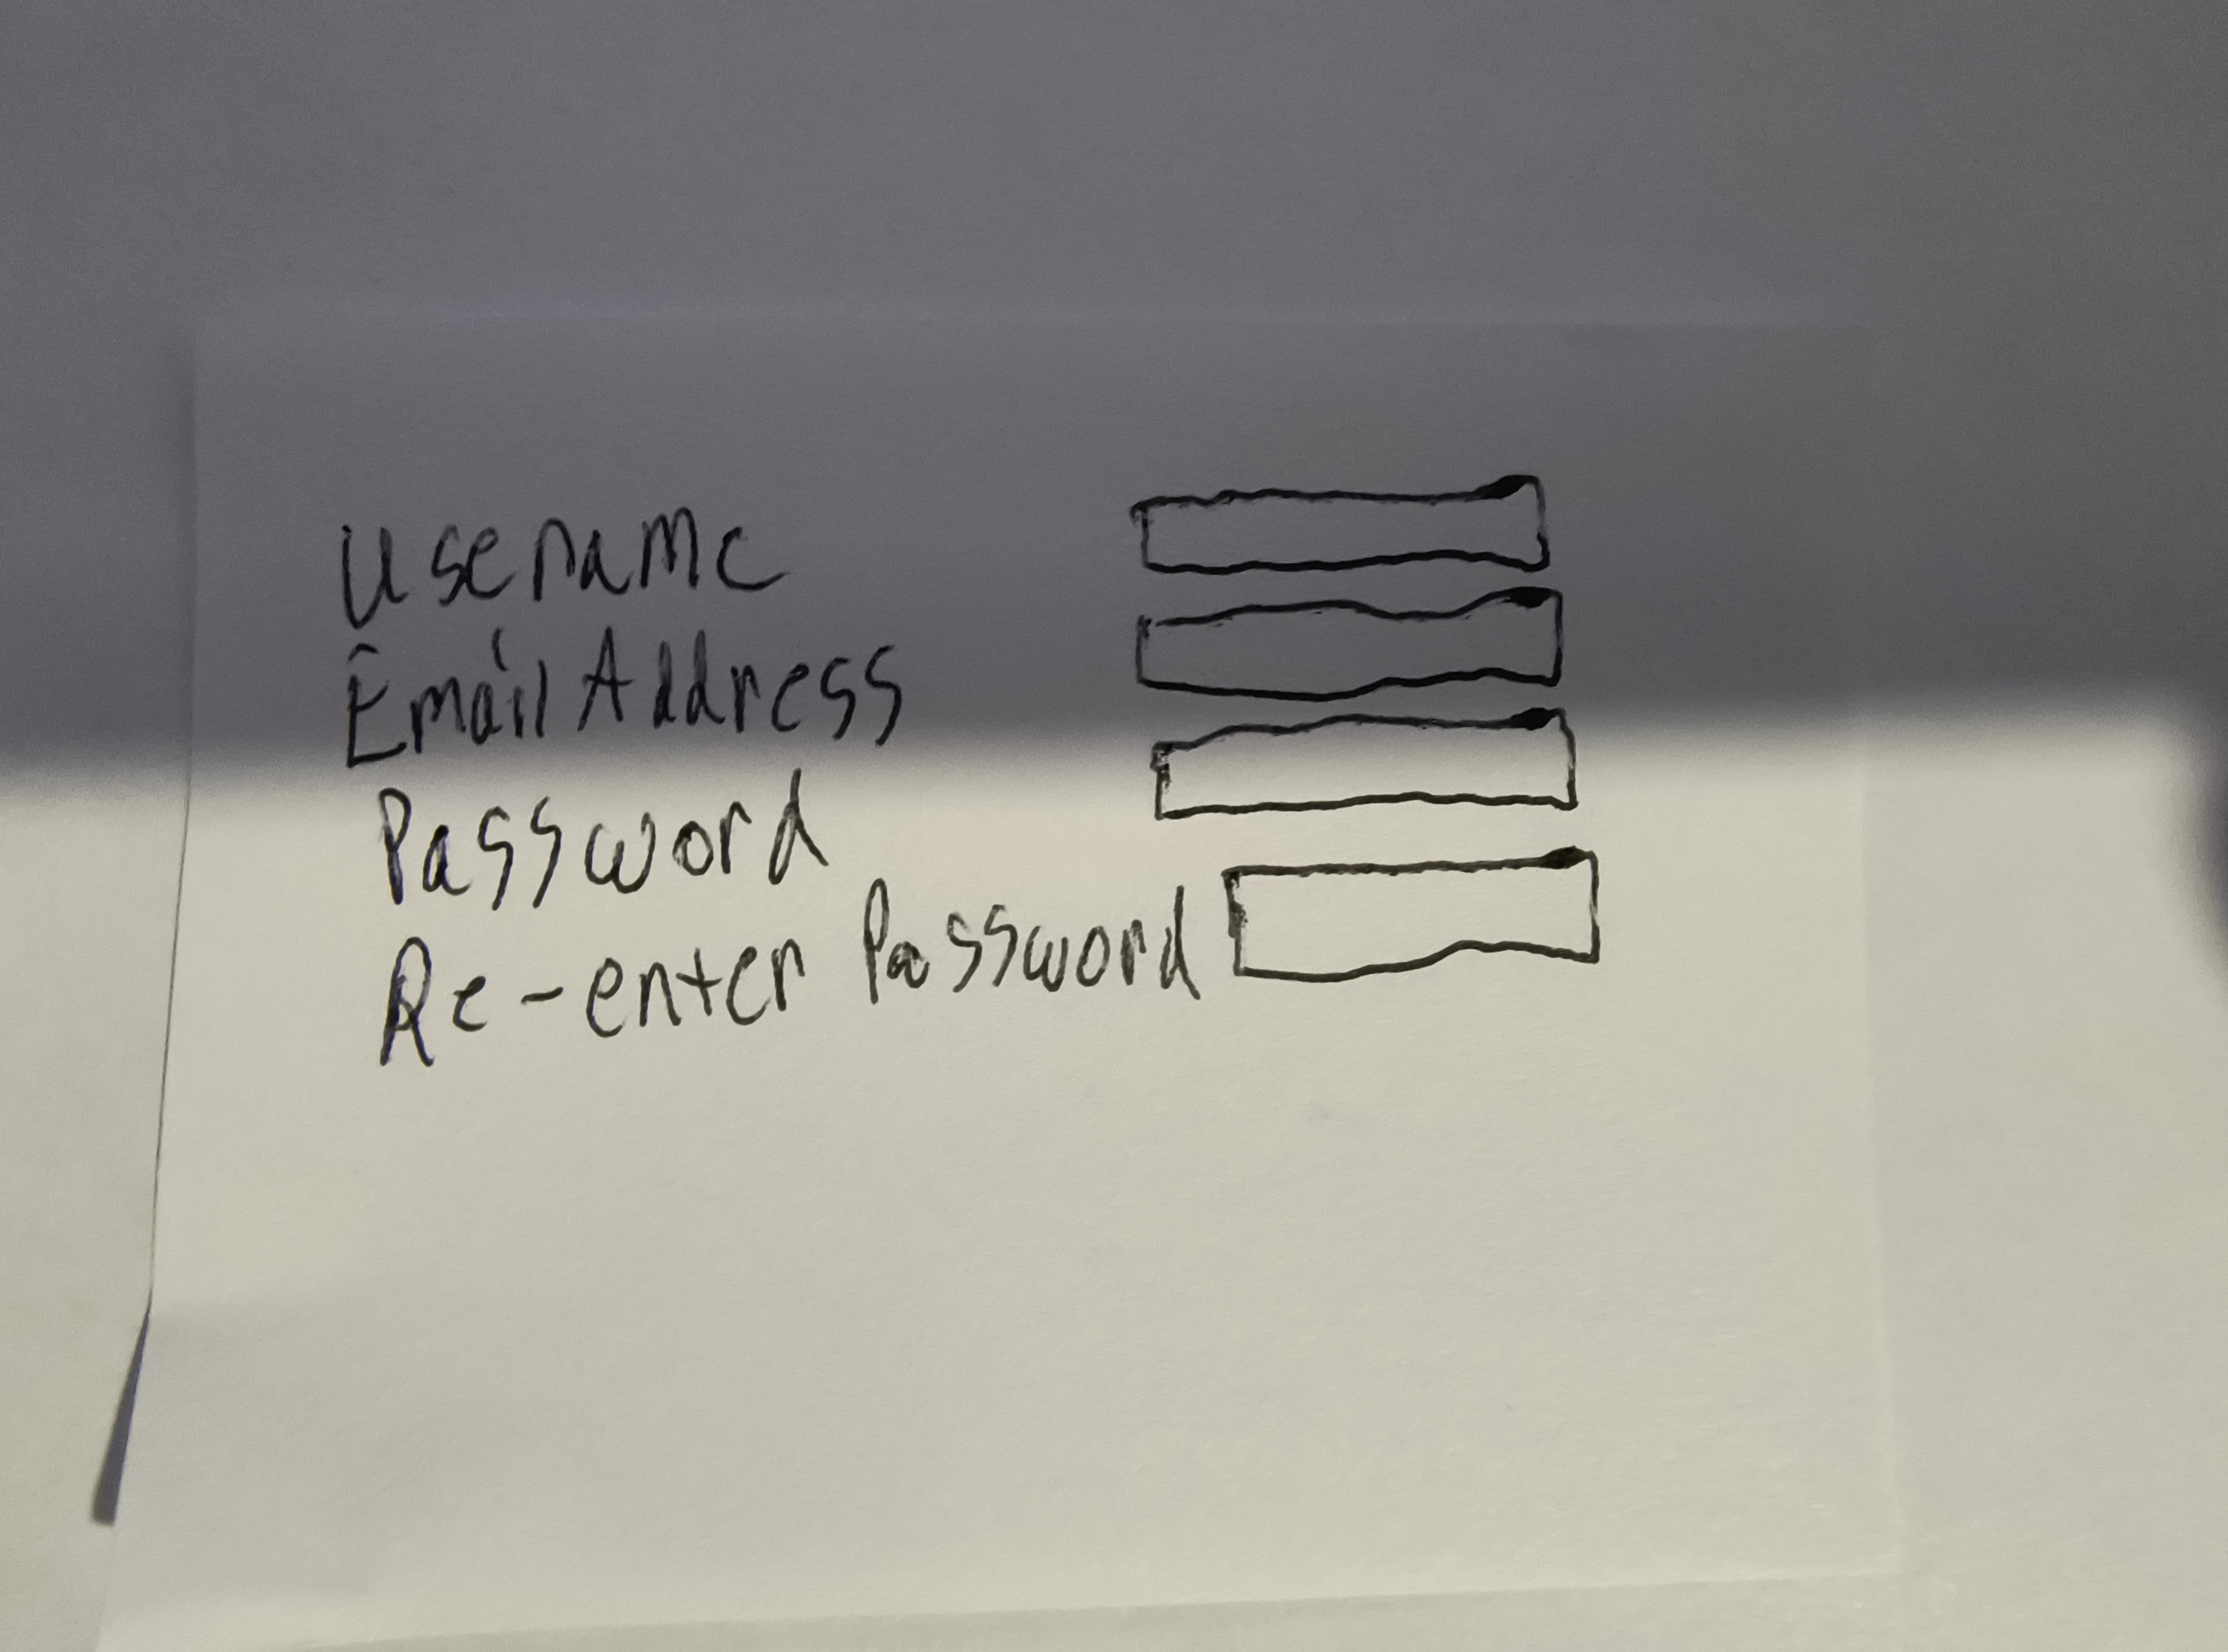 Usename
Email Address
Password
Re-enter Password